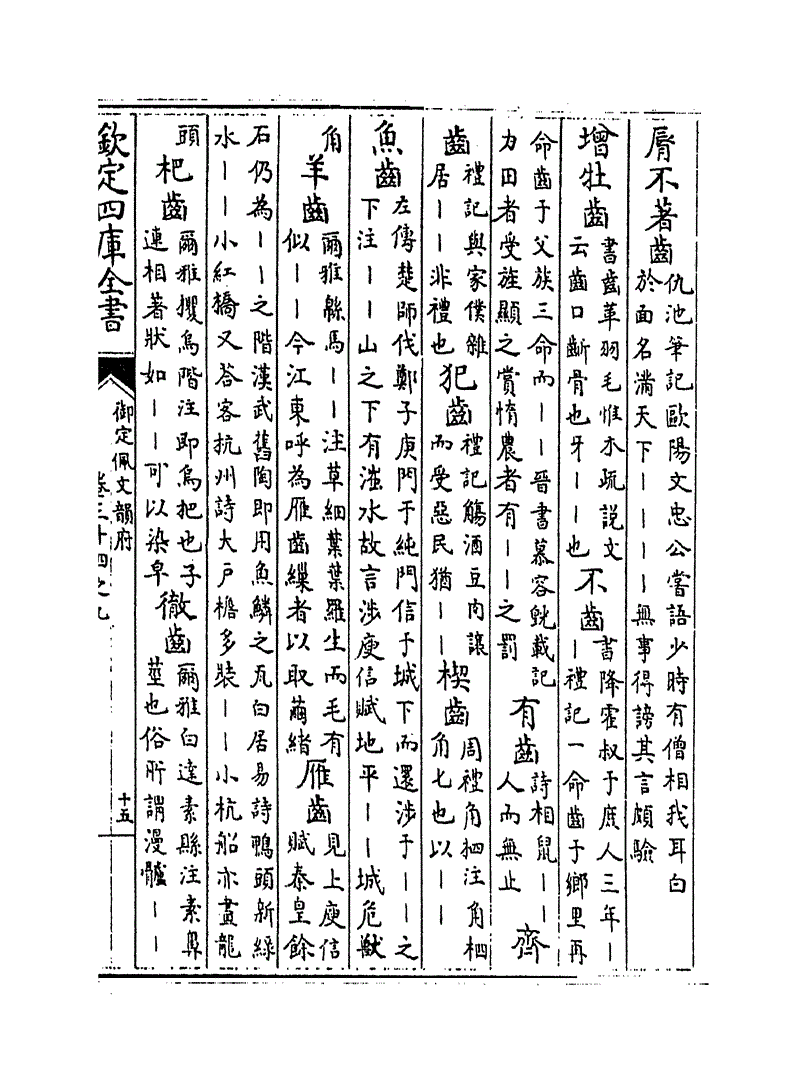 脣不著齒仇池筆記歐陽文忠公嘗語少時有僧相我耳白
於面名滿天下丨丨丨丨無事得謗其言頗驗
增牡齒書齒革羽毛惟木疏說文
云齒口齗骨也牙丨丨也不齒書降霍叔于庶人三年丨
丨禮記一命齒于鄉里再
命齒于父族三命而丨丨晉書慕容皝載記
力田者受旌顯之賞惰農者有丨丨之罰有齒詩相鼠丨丨
人而無止齊
齒禮記與家僕雜
居丨丨非禮也犯齒禮記觴酒豆肉讓
而受惡民猶丨丨楔齒周禮角柶注角柶
角七也以丨丨
魚齒左傳楚師伐鄭子庚門于純門信于城下而還涉于丨丨之
下注丨丨山之下有滍水故言涉庾信賦地平丨丨城危獸
角羊齒爾雅緜馬丨丨注草細葉葉羅生而毛有
似丨丨今江東呼為雁齒繅者以取繭緒雁齒見上庾信
賦秦皇餘
石仍為丨丨之階漢武舊陶即用魚鱗之瓦白居易詩鴨頭新綠
水丨丨小紅橋又荅客杭州詩大戸檐多裝丨丨小杭船亦畫龍
頭杷齒爾雅欔烏階注即烏把也子
連相著狀如丨丨可以染皁徹齒爾雅白達素縣注素鼻
莖也俗所謂漫髗丨丨
欽定四庫全書
御定佩文韻府
卷三十四之九
十五